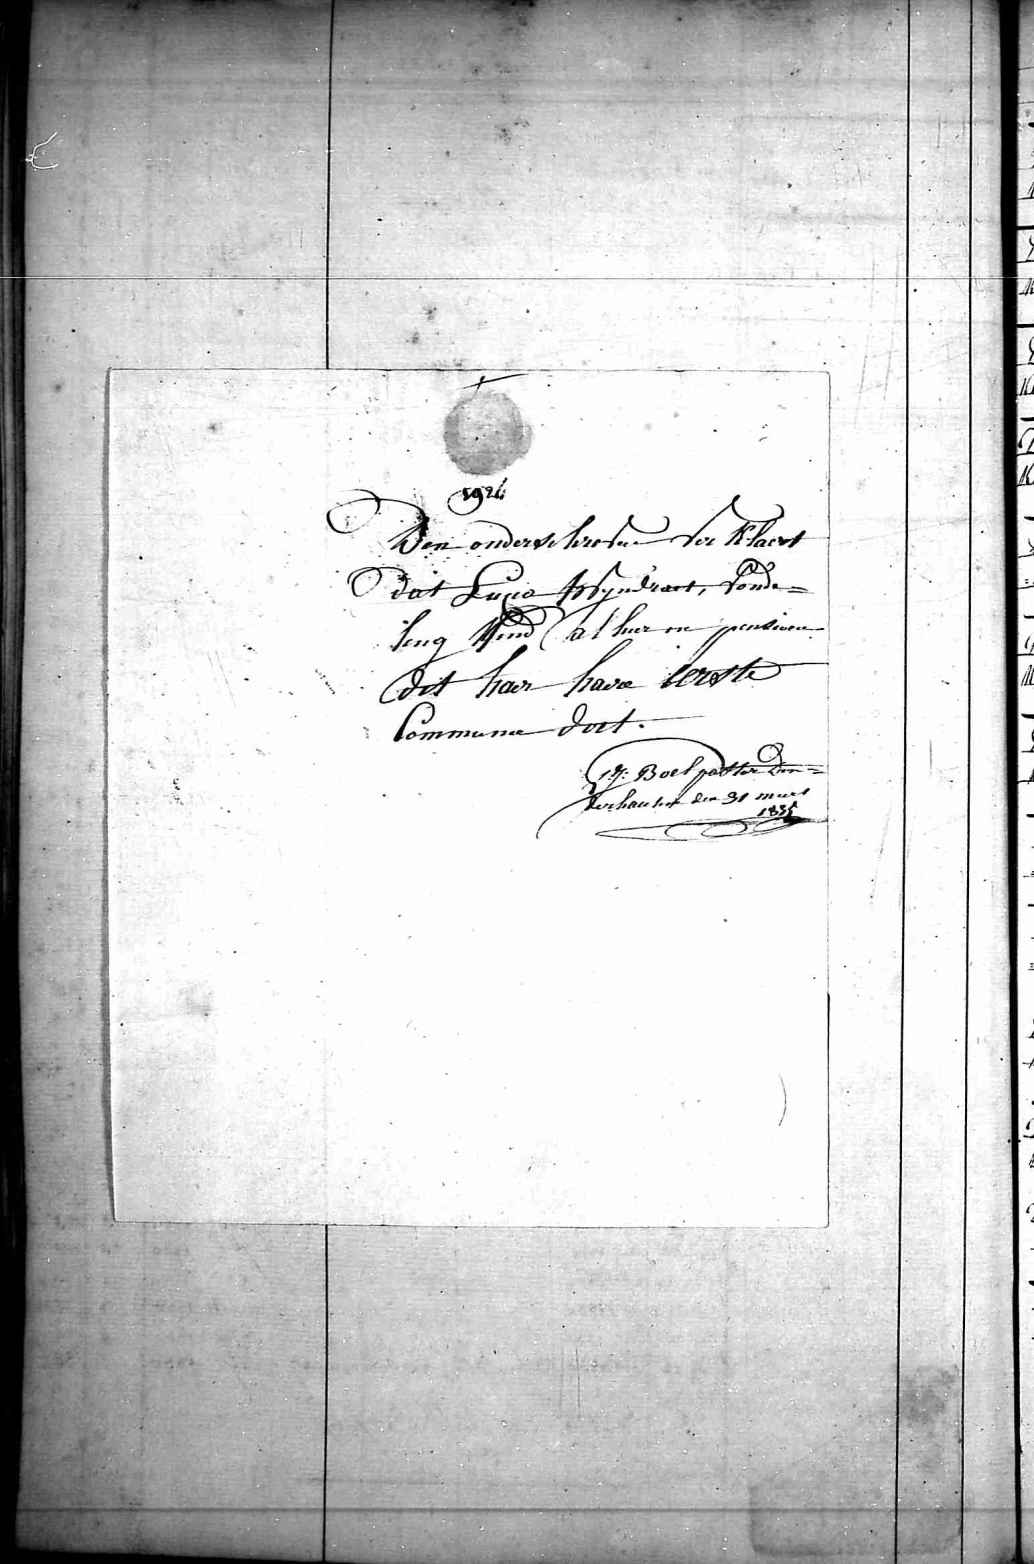 1924
Den onderschreven verklaert
dat Lucia Wyndraet, vonde=
leng kind alhier en pensioen
dit haer hare eerste
Commune doet.
Boel pastor Den=
derhautem den 31 mars
1835